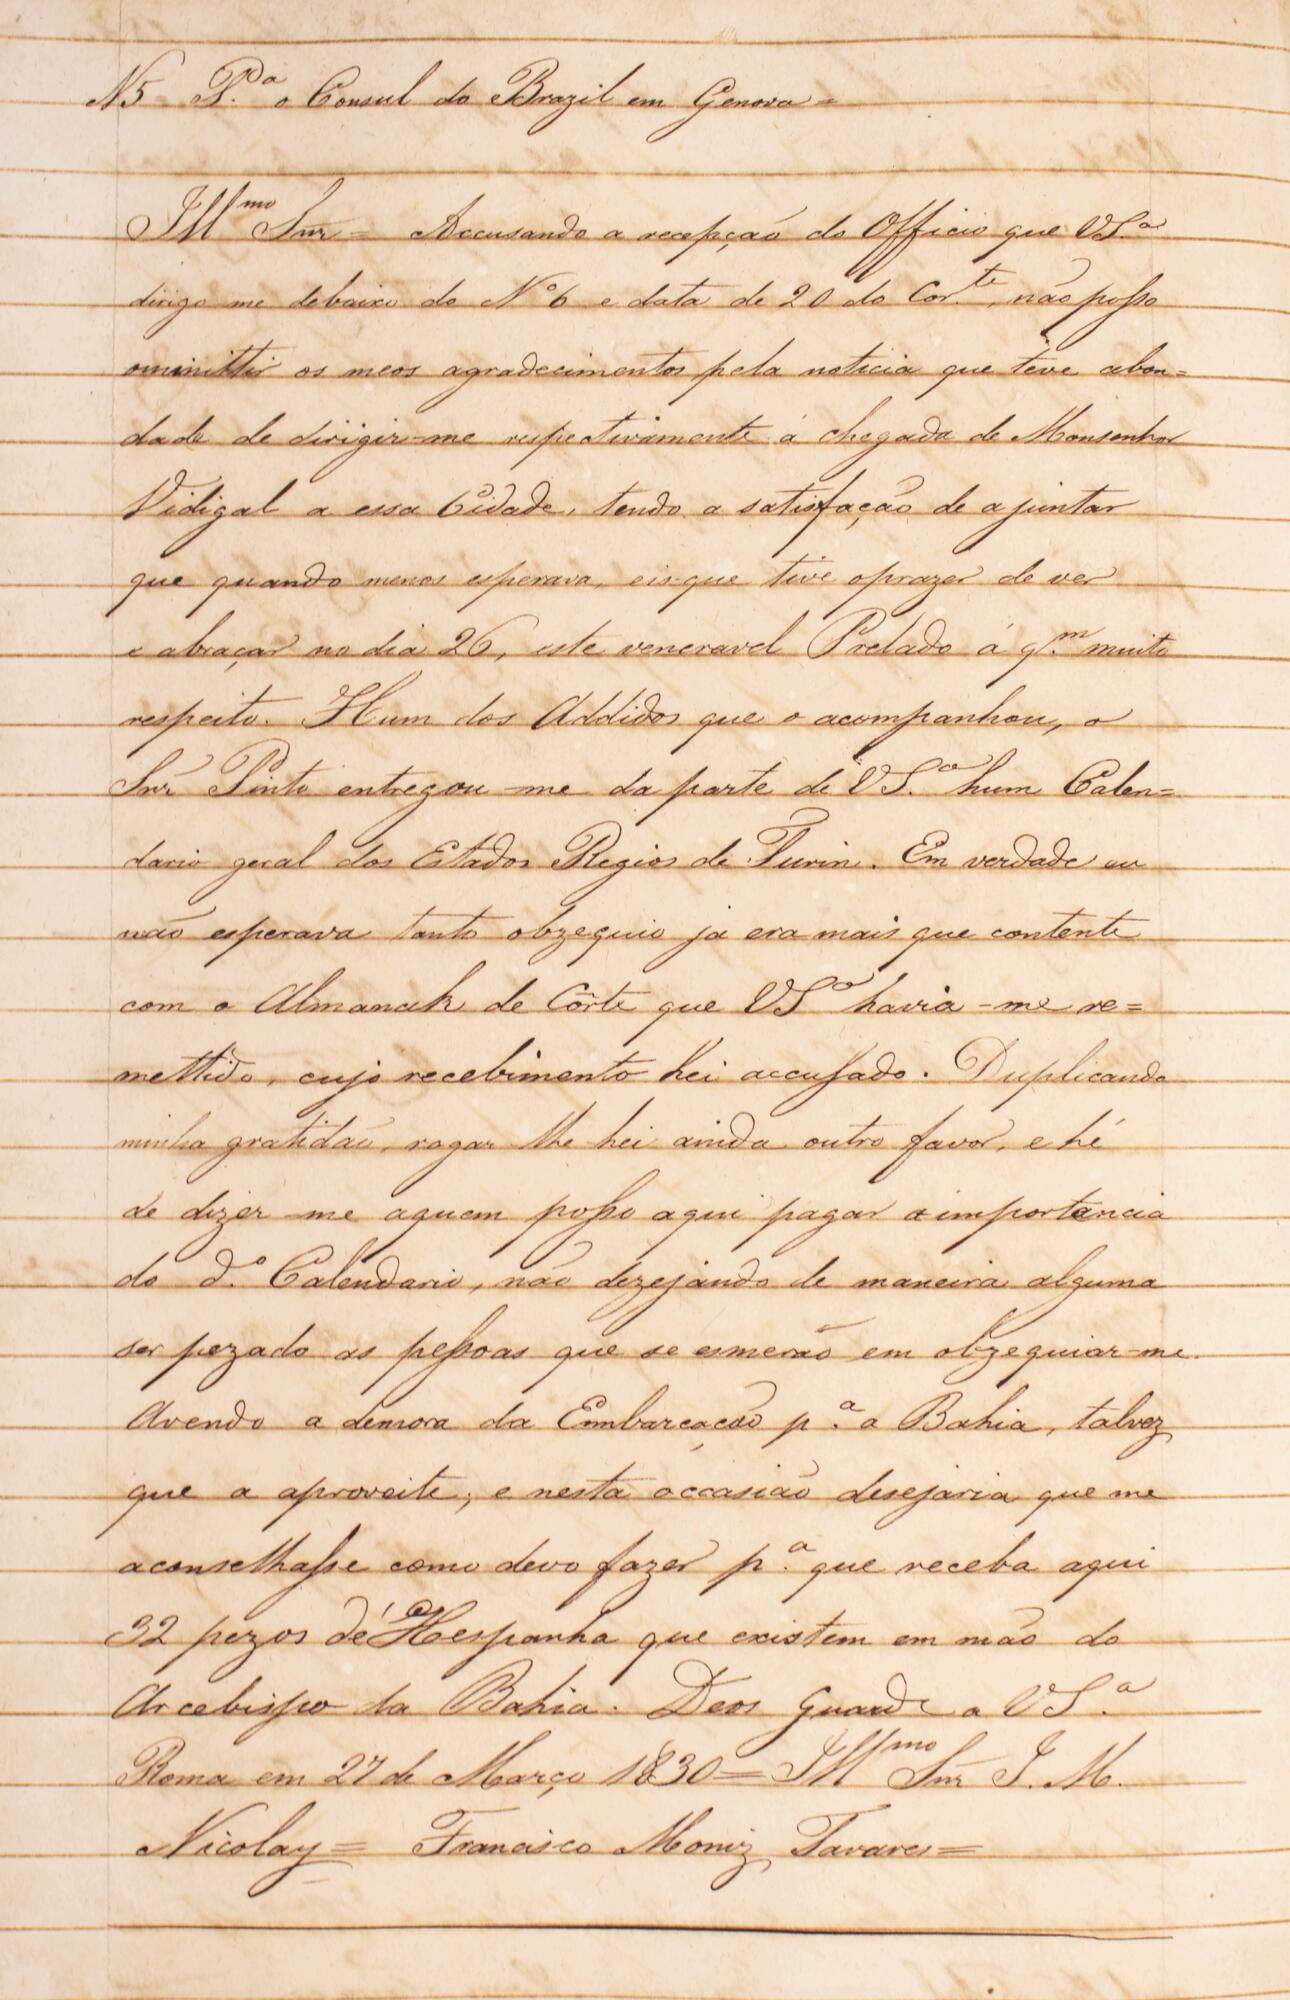 N5 = P.ª o Consul do Brazil em Genova =
Illmo Snr = Accusando a recepção do Officio que VS.ª
dirigo me debaixo do Nº 6 e data de 20 do Cor.te, não posso
ommittir os meos agradecimentos pela noticia que teve abon=
dade de dirigir-me respectivamente á chegada de Monsenhor
Vidigal a essa Cidade, tendo a satisfação de ajuntar
que quando menos esperava, eis que tive oprazer de ver
e abraçar no dia 26, este veneravel Prelado á q.m muito
respeito. Hum dos Addidos que o acompanhou, o
Snr Pinto entregou-me da parte de VS.ª hum Calen=
dario geral dos Estados Regios de Turin. Em verdade eu
não esperava tanto obzequio já era mais que contente
com o Almanak de Côrte que VSª havia-me re=
mettido, cujo recebimento hei accusado. Duplicando
minha gratidão, rogar-lhe-hei ainda outro favor, e hé
de dizer-me aquem posso aqui pagar a importancia
do d.º Calendario, não dezejando de maneira alguma
ser pezado as pessoas que se esmerão em obzequiar-me.
Avendo a demora da Embarcação p.ª a Bahia, talvez
que a aproveite; e nesta occasião desejaria que me
aconselhasse como devo fazer p.ª que receba aqui
32 pezos de Hespanha que existem em mão do
Arcebispo da Bahia. Deos Guarde a VS.ª
Roma em 27 de Março 1830 = Illmo Snr J. M.
Nicolay = Francisco Moniz Tavares =